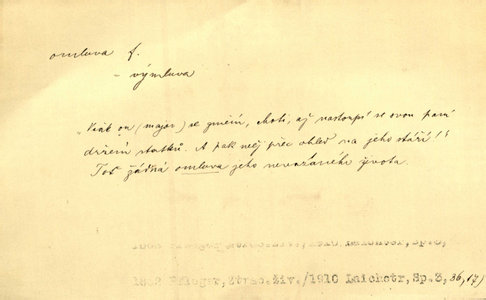 omluva f.
– výmluva
„Však on (major) se změní, choti, až nastoupí se svou paní
držení statků. A pak měj přec ohled na jeho stáří!“
Toť žádná omluva jeho nevázaného života.
Pfleger, Ztrac. živ./1910 Laichstr, Sp. 3, 36, 17/